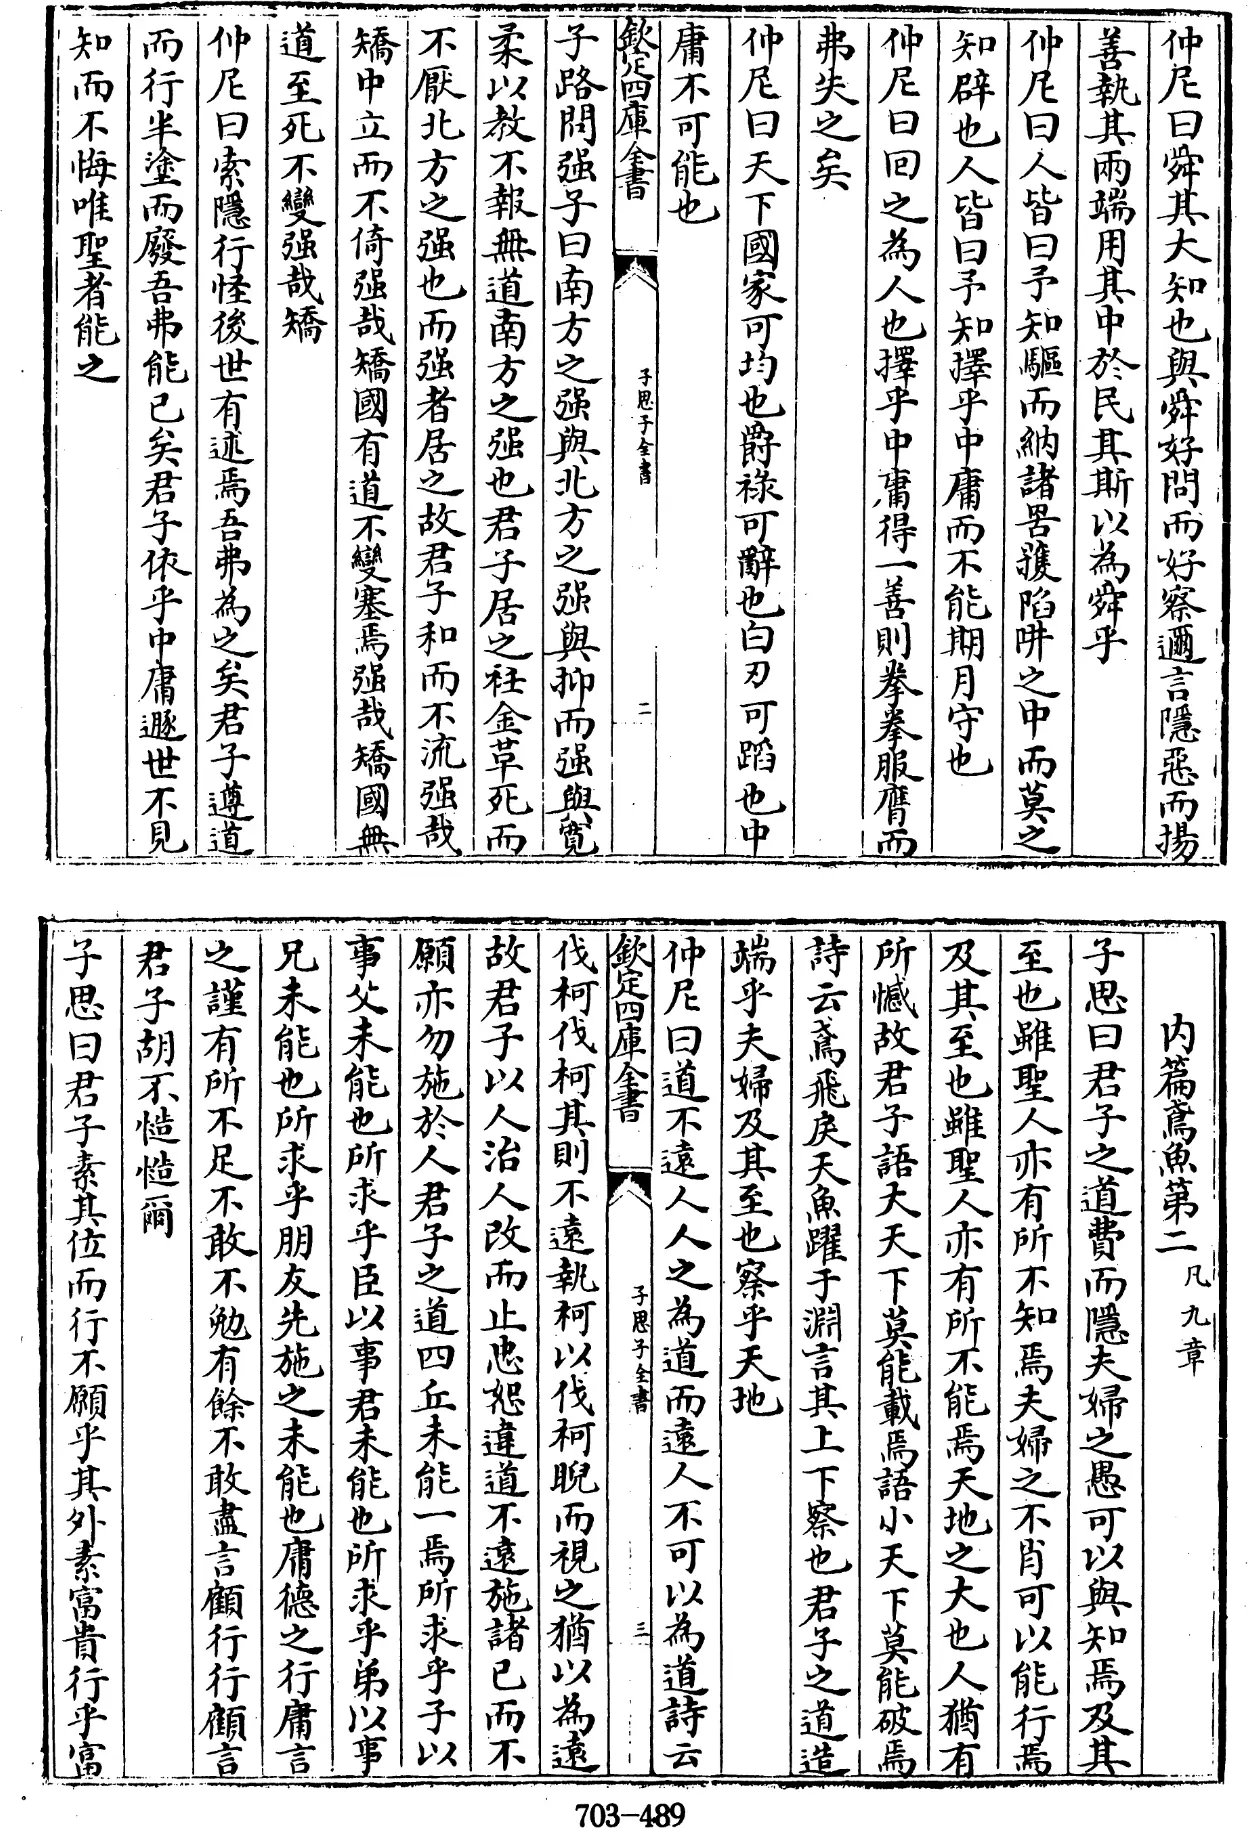 仲尼曰舜其大知也與舜好問而好察邇言隱惡而揚
善執其兩端用其中於民其斯以為舜乎
仲尼曰人皆曰予知驅而納諸罟擭陷阱之中而莫之
知辟也人皆曰予知擇乎中庸而不能期月守也
仲尼曰回之為人也擇乎中庸得一善則拳拳服膺而
弗失之矣
仲尼曰天下國家可均也爵祿可辭也白刃可蹈也中
庸不可能也
欽定四庫全書 子思子全書 二
子路問强子曰南方之强與北方之强與抑而强與寬
柔以教不報無道南方之强也君子居之衽金革死而
不厭北方之强也而强者居之故君子和而不流强哉
矯中立而不倚强哉矯國有道不變塞焉强哉矯國無
道至死不變强哉矯
仲尼曰索隱行怪後世有述焉吾弗為之矣君子遵道
而行半塗而廢吾弗能已矣君子依乎中庸遯世不見
知而不悔唯聖者能之
内篇鳶魚第二凡九章
子思曰君子之道費而隱夫婦之愚可以與知焉及其
至也雖聖人亦有所不知焉夫婦之不肖可以能行焉
及其至也雖聖人亦有所不能焉天地之大也人猶有
所憾故君子語大天下莫能載焉語小天下莫能破焉
詩云鳶飛戾天魚躍于淵言其上下察也君子之道造
端乎夫婦及其至也察乎天地
仲尼曰道不遠人人之為道而遠人不可以為道詩云
欽定四庫全書 子思子全書 三
伐柯伐柯其則不遠執柯以伐柯睨而視之猶以為遠
故君子以人治人改而止忠恕違道不遠施諸已而不
願亦勿施於人君子之道四丘未能一焉所求乎子以
事父未能也所求乎臣以事君未能也所求乎弟以事
兄未能也所求乎朋友先施之未能也庸德之行庸言
之謹有所不足不敢不勉有餘不敢盡言顧行行顧言
君子胡不慥慥爾
子思曰君子素其位而行不願乎其外素富貴行乎富
703-489